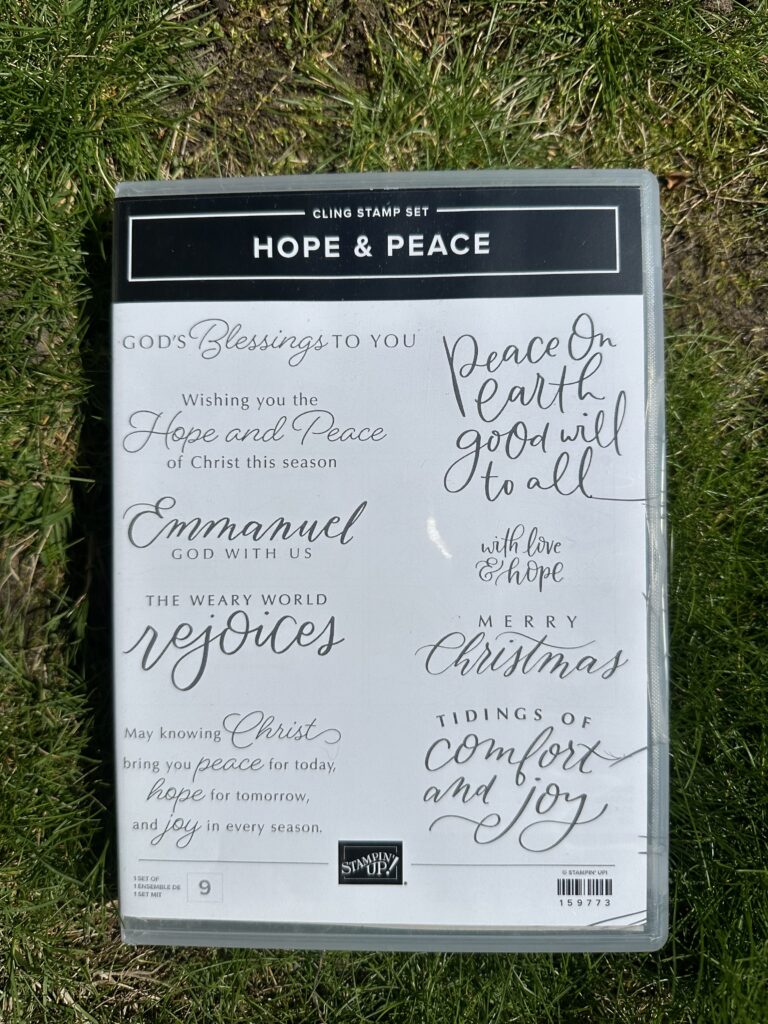 CLING STAMP SET
HOPE & PEACE
GOD'S Blessings TO YOU
Wishing you the
Hope and Peace
of Christ this season
Emmanuel
GOD WITH US
THE WEARY WORLD
rejoices
May knowing Christ
bring you peace for today,
hope for tomorrow,
and joy in every season.
Peace On
earth
good will
to all
with love
& hope
MERRY
Christmas
TIDINGS OF
comfort
and joy
1 SET OF
1 ENSEMBLE DE
1 SET MIT
9
STAMPIN'
UP!
© STAMPIN' UP!
159773